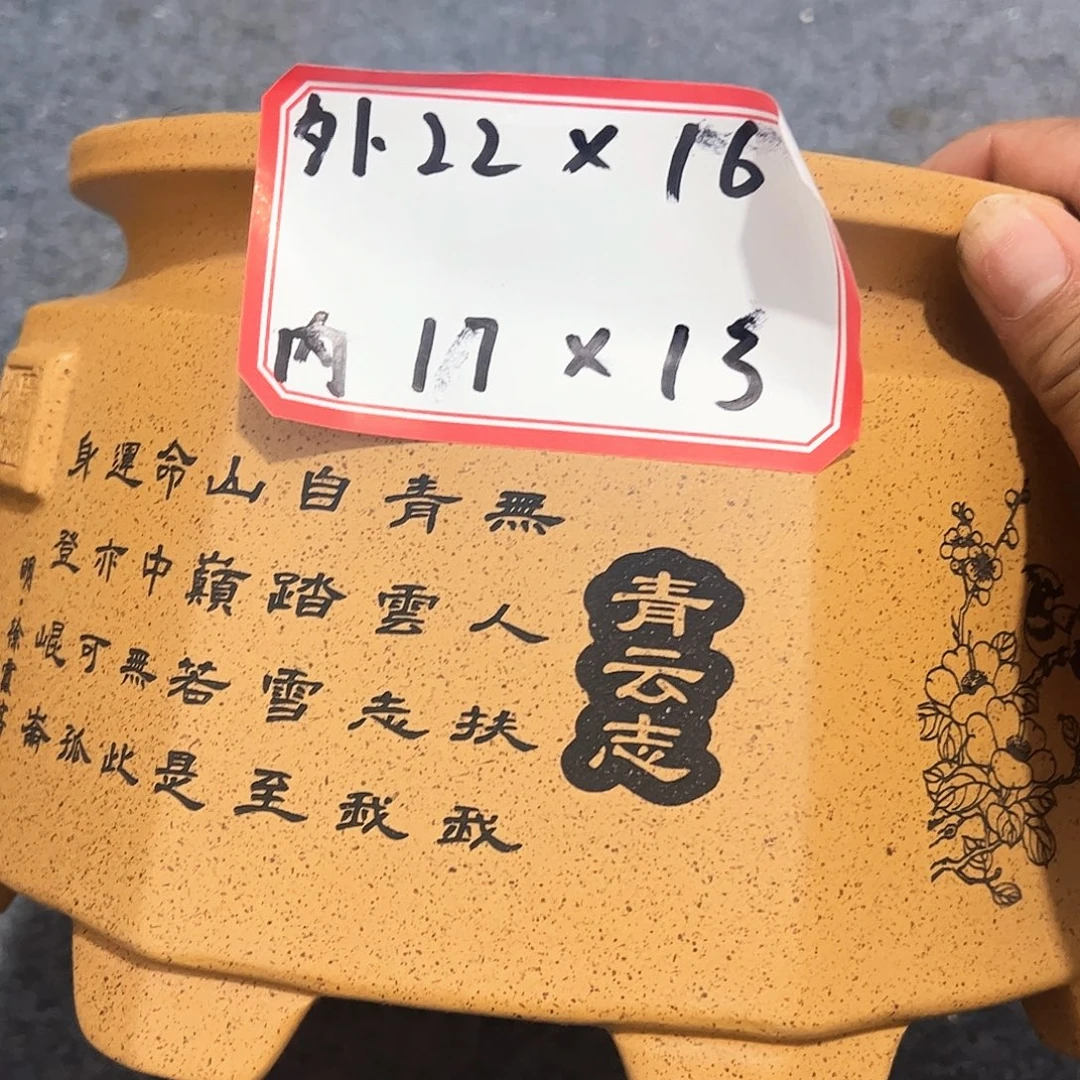 外 22 × 16
内 17 × 13
青云志
無人扶我
青雲志我
自踏雪至
山巔若是
命中無此
運亦可孤
身登崐崙
明·徐霞